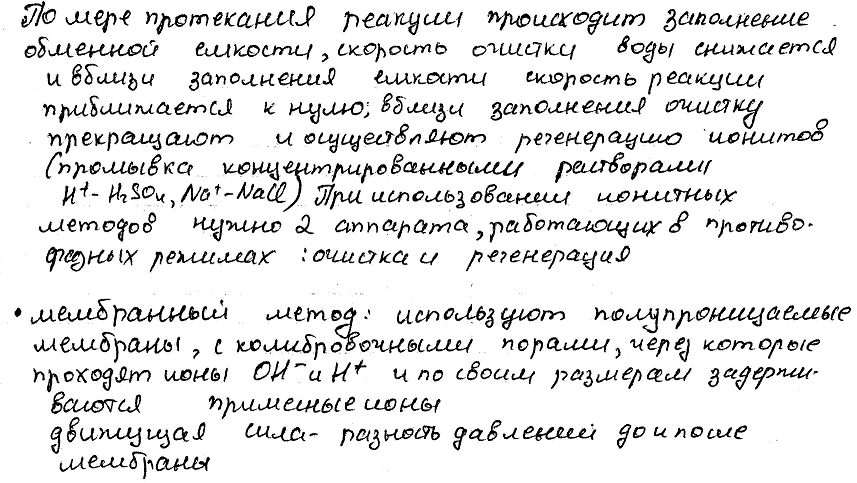 По мере протекания реакции происходит заполнение
обменной емкости, скорость очистки воды снижается
и вблизи заполнения емкости скорость реакции
приближается к нулю; вблизи заполнения очистку
прекращают и осуществляют регенерацию ионитов
(промывка концентрированными растворами
H⁺- H₂SO₄, Na⁺- NaCl) При использовании ионитных
методов нужно 2 аппарата, работающих в противо-
фазных режимах : очистка и регенерация
• мембранный метод: используют полупроницаемые
мембраны, с калибровочными порами, через которые
проходят ионы OH⁻ и H⁺ и по своим размерам задержи-
ваются примесные ионы
движущая сила - разность давлений до и после
мембраны